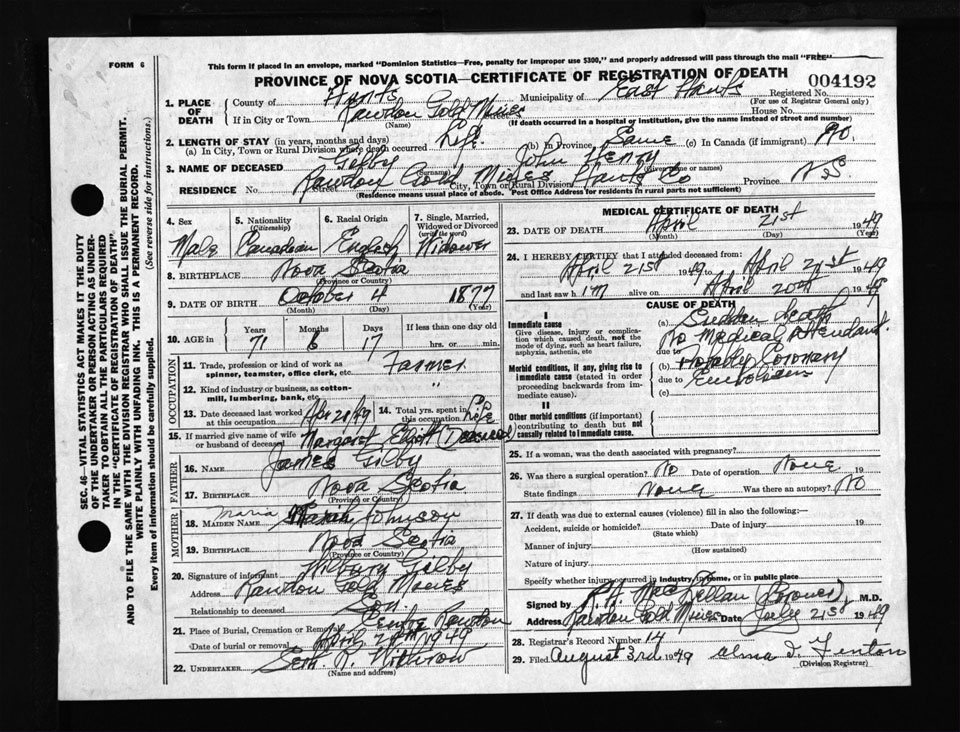 FORM 6
This form if placed in an envelope, marked "Dominion Statistics—Free, penalty for improper use $300," and properly addressed will pass through the mail "FREE"
PROVINCE OF NOVA SCOTIA—CERTIFICATE OF REGISTRATION OF DEATH
004192
1. PLACE OF DEATH
County of Hants Municipality of East Hants Registered No.
(For use of Registrar General only)
If in City or Town Rawdon Gold Mines Street House No.
(Name) (If death occurred in a hospital or institution, give the name instead of street and number)
2. LENGTH OF STAY (in years, months and days)
(a) In City, Town or Rural Division where death occurred Life. (b) In Province Same (c) In Canada (if immigrant) No.
3. NAME OF DECEASED Gilby John Henry
(Surname) (Given name or names)
RESIDENCE No. Rawdon Gold Mines City, Town or Rural Division Hants Co Province N S.
(Residence means usual place of abode. Post Office Address for residents in rural parts not sufficient)
4. Sex
Male
5. Nationality
(Citizenship)
Canadian
6. Racial Origin
English
7. Single, Married, Widowed or Divorced
(write the word)
Widower
8. BIRTHPLACE Nova Scotia
(Province or Country)
9. DATE OF BIRTH October 4 1877
(Month) (Day) (Year)
10. AGE in
Years Months Days If less than one day old
71 6 17 hrs. or min.
OCCUPATION
11. Trade, profession or kind of work as spinner, teamster, office clerk, etc. Farmer
12. Kind of industry or business, as cotton-mill, lumbering, bank, etc. "
13. Date deceased last worked at this occupation Apr 20/49 14. Total yrs. spent in this occupation Life
15. If married give name of wife or husband of deceased Margaret (Deceased)
FATHER
16. NAME James Gilby
17. BIRTHPLACE Nova Scotia
(Province or Country)
MOTHER
18. MAIDEN NAME Maria Johnson
19. BIRTHPLACE Nova Scotia
(Province or Country)
20. Signature of informant Wilbury Gilby
Address Rawdon Gold Mines
Relationship to deceased Son
21. Place of Burial, Cremation or Removal Centre Rawdon
Date of burial or removal April 1949
22. UNDERTAKER Seth R. Withrow
(Name and address)
MEDICAL CERTIFICATE OF DEATH
23. DATE OF DEATH April 21st 1949
(Month) (Day) (Year)
24. I HEREBY CERTIFY that I attended deceased from:
April 21st 1949 to April 21st 1949
and last saw him alive on April 20th 1949
CAUSE OF DEATH
I
Immediate cause
Give disease, injury or complication which caused death, not the mode of dying, such as heart failure, asphyxia, asthenia, etc
(a) Sudden death
No Medical Attendant.
due to
Morbid conditions, if any, giving rise to immediate cause (stated in order proceeding backwards from immediate cause).
(b) Probably Coronary
due to Embolism
(c)
II
Other morbid conditions (if important) contributing to death but not causally related to immediate cause.
25. If a woman, was the death associated with pregnancy?
26. Was there a surgical operation? No Date of operation None 19
State findings None Was there an autopsy? No
27. If death was due to external causes (violence) fill in also the following:—
Accident, suicide or homicide? Date of injury 19
(State which)
Manner of injury
(How sustained)
Nature of injury
Specify whether injury occurred in industry, in home, or in public place
Signed by R. H. MacLellan (Coroner) M.D.
Address Rawdon Gold Mines Date July 21st 1949
28. Registrar's Record Number 14
29. Filed August 3rd 1949 Alma I. Fenton
(Division Registrar)
SEC. 46—VITAL STATISTICS ACT MAKES IT THE DUTY
OF THE UNDERTAKER OR PERSON ACTING AS UNDER-
TAKER TO OBTAIN ALL THE PARTICULARS REQUIRED
IN THE "CERTIFICATE OF REGISTRATION OF DEATH"
AND TO FILE THE SAME WITH THE DIVISION REGISTRAR WHO SHALL ISSUE THE BURIAL PERMIT.
WRITE PLAINLY WITH UNFADING INK. THIS IS A PERMANENT RECORD.
Every item of information should be carefully supplied. (See reverse side for instructions.)